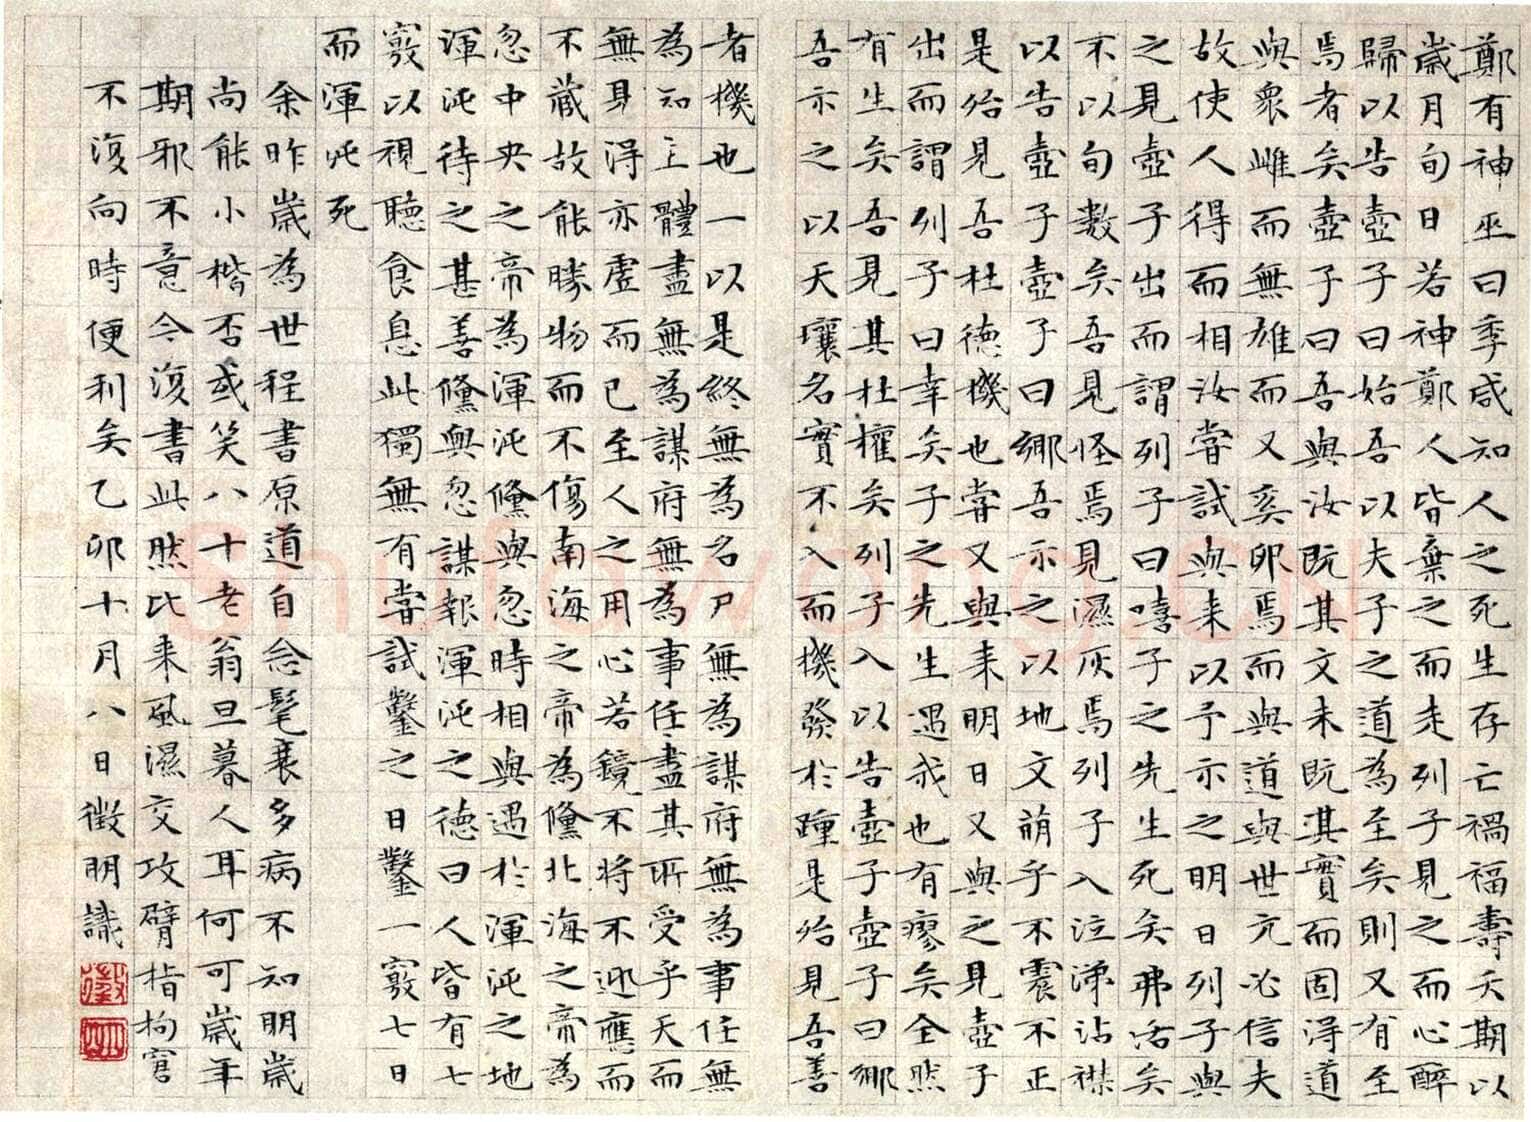 鄭有神巫曰季咸知人之死生存亡禍福壽夭期以
歲月旬日若神鄭人皆棄之而走列子見之而心醉
歸以告壺子曰始吾以夫子之道為至矣則又有至
焉者矣壺子曰吾與汝既其文未既其實而固得道
與眾雌而無雄而又奚卵焉而與道與世亢必信夫
故使人得而相汝嘗試與来以予示之明日列子與
之見壺子出而謂列子曰嘻子之先生死矣弗活矣
不以旬數矣吾見怪焉見濕灰焉列子入泣涕沾襟
以告壺子壺子曰鄉吾示之以地文萌乎不震不正
是殆見吾杜德機也嘗又與来明日又與之見壺子
出而謂列子曰幸矣子之先生遇我也有廖矣全然
有生矣吾見其杜權矣列子入以告壺子壺子曰鄉
吾示之以天壤名實不入而機發於踵是殆見吾善
者機也一以是終無為名尸無為謀府無為事任無
為知主體盡無為謀府無為事任盡其所受乎天而
無身得亦虛而已至人之用心若鏡不將不迎應而
不藏故能勝物而不傷南海之帝為儵北海之帝為
忽中央之帝為渾沌儵與忽時相與遇於渾沌之地
渾沌待之甚善儵與忽謀報渾沌之德曰人皆有七
竅以視聽食息此獨無有嘗試鑿之日鑿一竅七日
而渾沌死
余昨歲為世程書原道自念髦衰多病不知明歲
尚能小楷否或笑八十老翁旦暮人耳何可歲年
期邪不意今復書此然比来風濕交攻臂指拘窘
不復向時便利矣乙卯十月八日徵明識
徵
明
Shufawang.CN